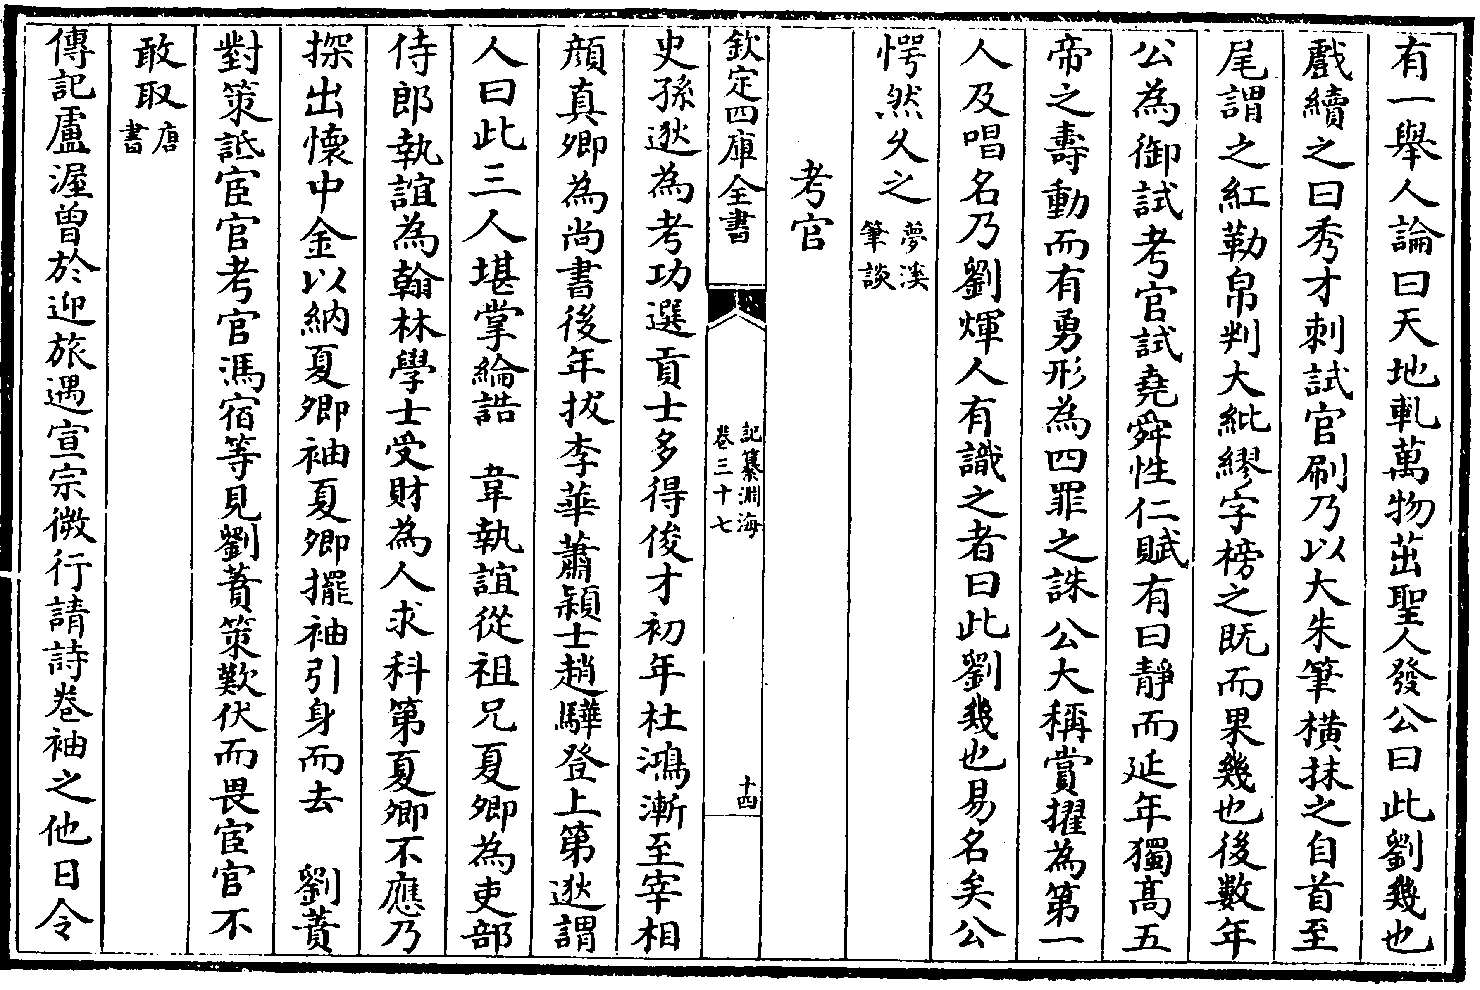 有一舉人論曰天地軋萬物茁聖人發公曰此劉幾也
戲續之曰秀才刺試官刷乃以大朱筆橫抹之自首至
尾謂之紅勒帛判大紕繆字榜之既而果幾也後數年
公為御試考官試堯舜性仁賦有曰靜而延年獨髙五
帝之壽動而有勇形為四罪之誅公大稱賞擢為第一
人及唱名乃劉煇人有識之者曰此劉幾也易名矣公
愕然久之夢溪
筆談
考官
欽定四庫全書
記纂淵海
卷三十七
十四
史孫逖為考功選貢士多得俊才初年杜鴻漸至宰相
顔真卿為尚書後年拔李華蕭穎士趙驊登上第逖謂
人曰此三人堪掌綸誥 韋執誼從祖兄夏卿為吏部
侍郎執誼為翰林學士受財為人求科第夏卿不應乃
探出懷中金以納夏卿袖夏卿擺袖引身而去 劉蕡
對策詆宦官考官馮宿等見劉蕡策歎伏而畏宦官不
敢取唐
書
傳記盧渥曾於迎旅遇宣宗微行請詩卷袖之他日令